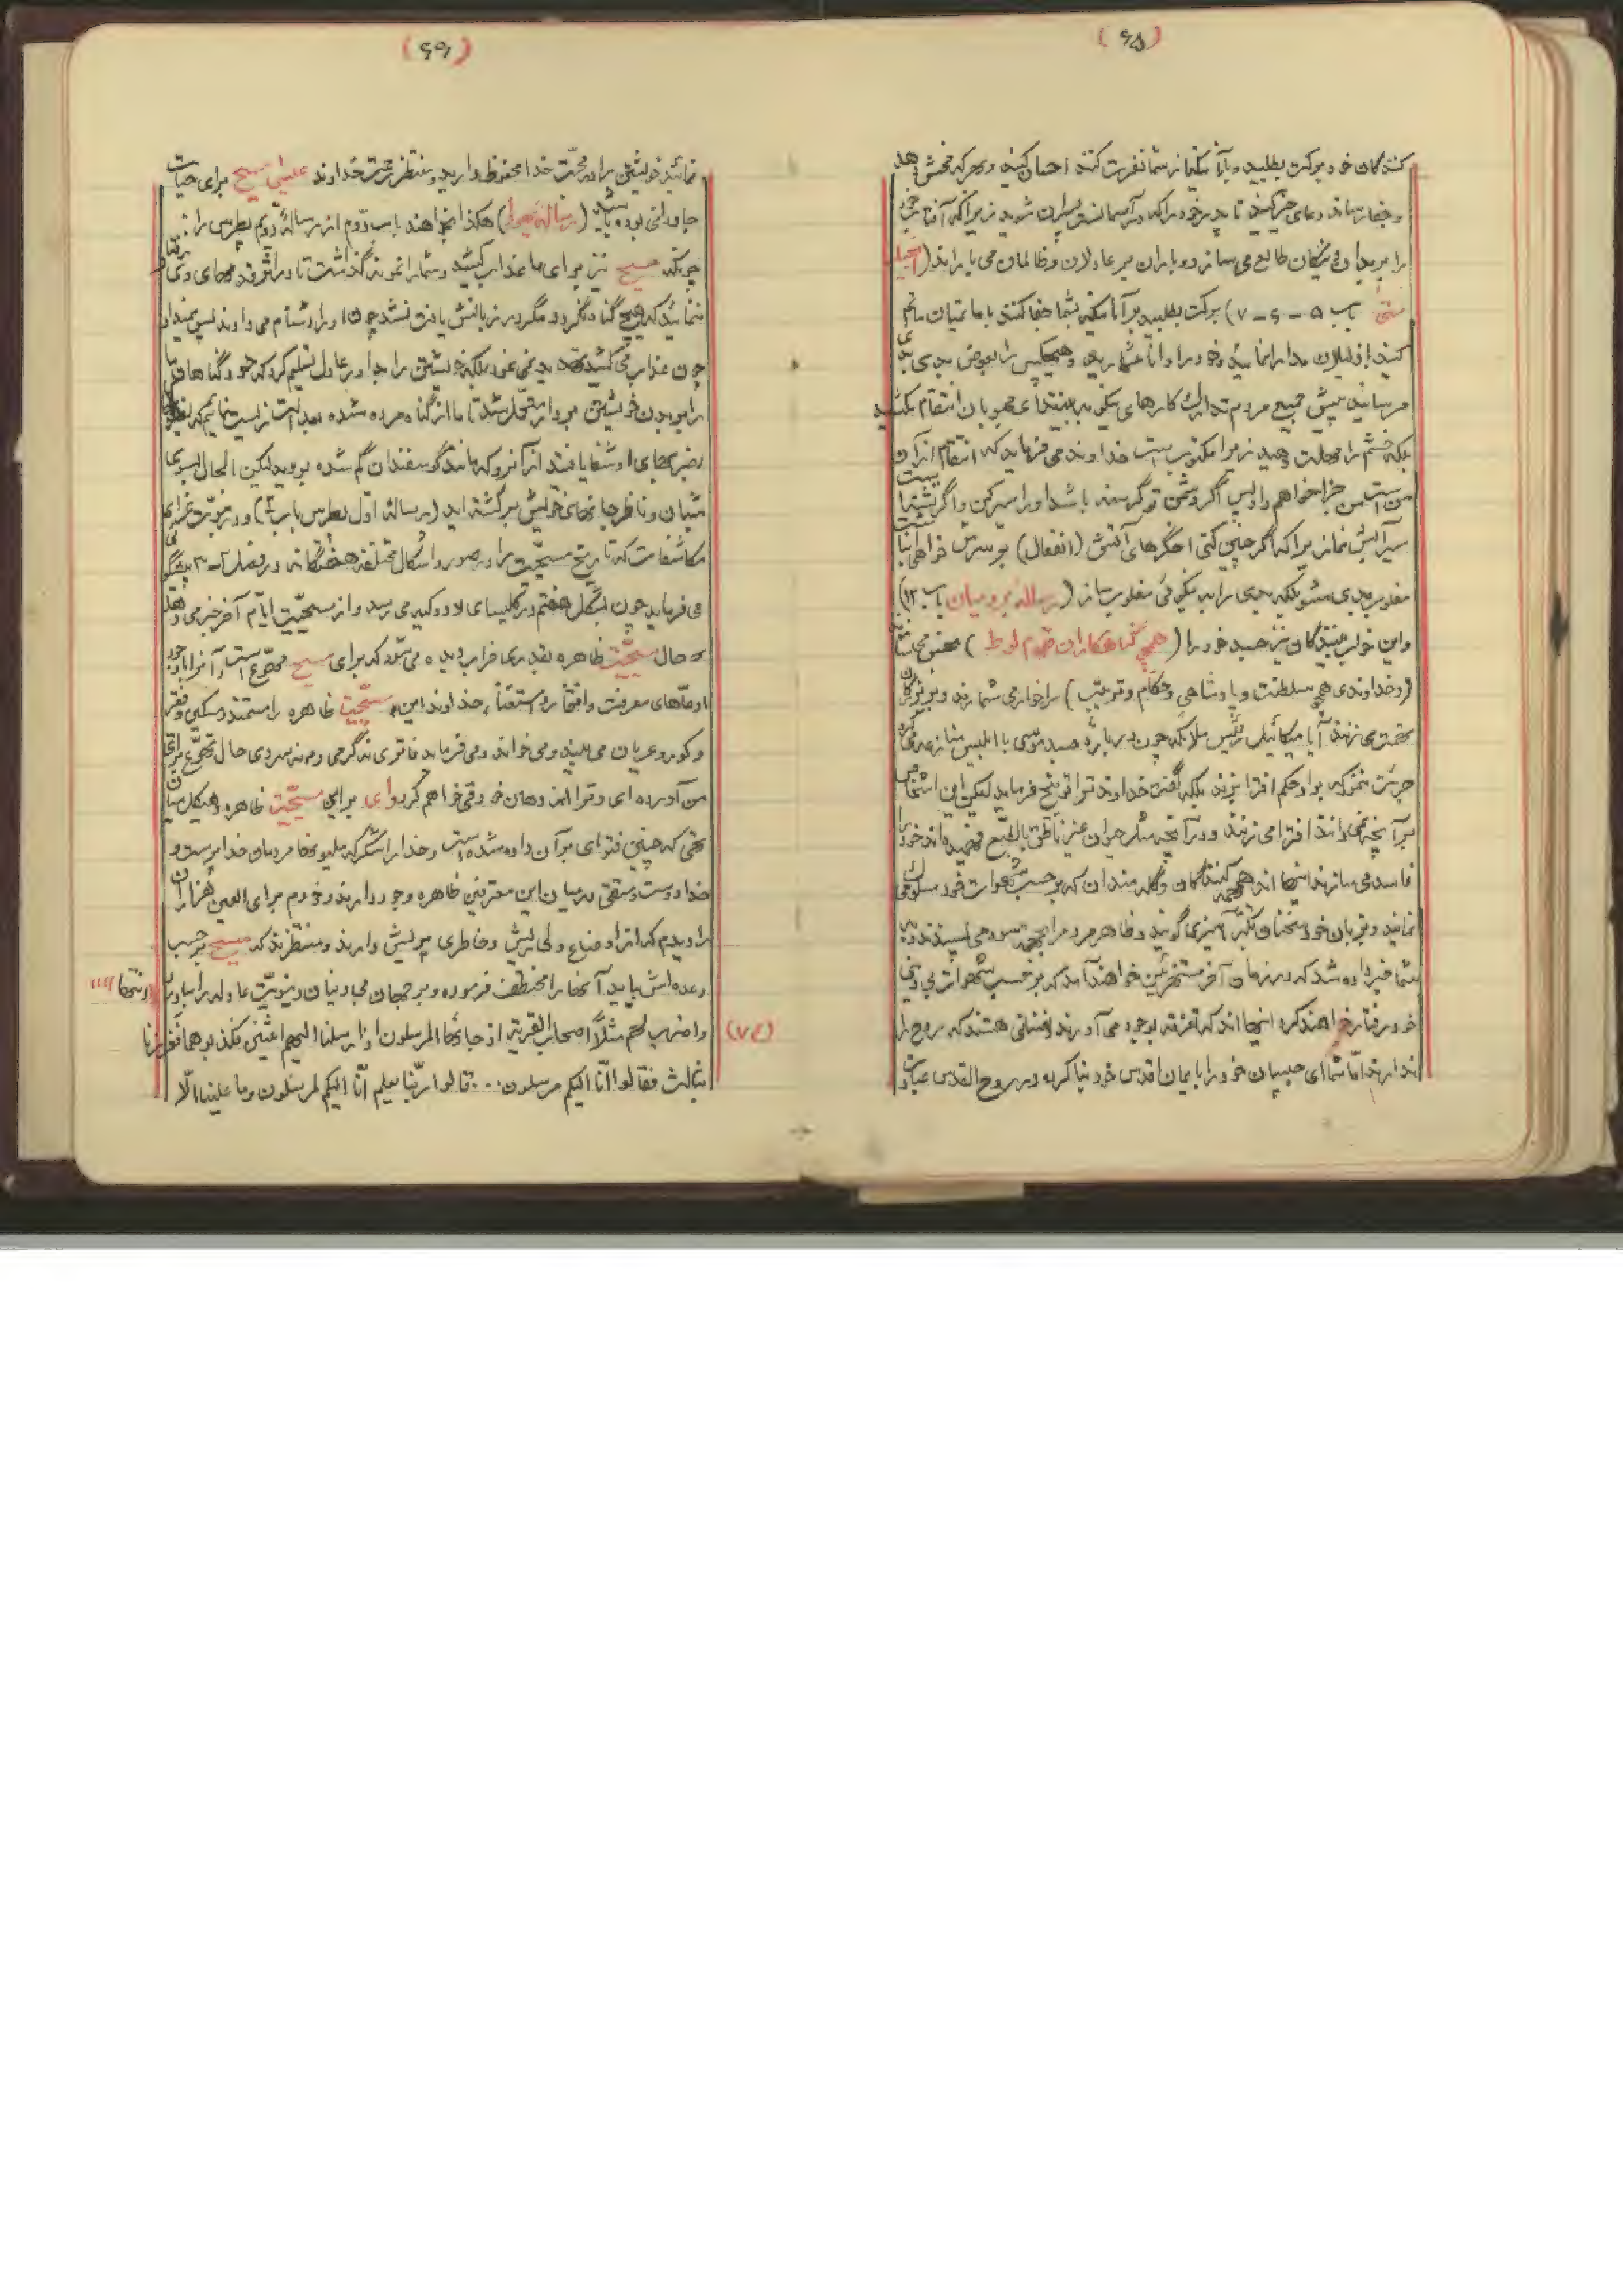 (۶۵)
کنندگان خود برکت بطلبید و بآنانیکه از شما نفرت کنند احسان کنید و بهر که فحش دهد
و جفا رساند دعای خیر کنید تا پدر خود را که در آسمانست پسران شوید زیرا که آفتاب خود
را بر بدان و نیکان طالع می سازد و باران بر عادلان و ظالمان می باراند (انجیل
متی باب ۵ - ۶ - ۷) برکت بطلبید بر آنانیکه بشما جفا کنند با ماتمیان ماتم
کنید با ذلیلان مدارا نمائید و خود را دانا مشمارید و هیچکس را بعوض بدی بدی
مرسانید پیش جمیع مردم تدارک کارهای نیکو به بینید ای محبوبان انتقام مکشید
بلکه خشم را مهلت دهید زیرا مکتوب است خداوند می فرماید که انتقام از آن
من است من جزا خواهم داد پس اگر دشمن تو گرسنه باشد او را سیر کن و اگر تشنه است
سیرآبش نما زیرا که اگر چنین کنی اخگرهای آتش (انفعال) بر سرش خواهی انباشت
مغلوب بدی مشو بلکه بدی را به نیکوئی مغلوب ساز (رساله برومیان باب ۱۲)
و این خواب بینندگان نیز جسد خود را (همچو گناهکاران قوم لوط) نجس می سازند
(و خداوندی همچو سلطنت و پادشاهی و حکام و ترتیب) را خوار می شمارند و بر بزرگان
تهمت می زنند آیا میکائیل رئیس ملائکه چون درباره جسد موسی با ابلیس منازعه می کرد
جرئت ننمود که بر او حکم افترا بزند بلکه گفت خداوند ترا توبیخ فرماید لیکن این اشخاص
بر آنچه نمی دانند افترا می زنند و در آنچه مثل حیوان غیر ناطق بالطبع فهمیده اند خود را
فاسد می سازند اینها اند همهمه کنندگان و گله مندان که بر حسب شهوات خود سلوک می
نمایند و بزبان خود سخنان تکبر آمیز می گویند و ظاهر مردم را بجهت سود می پسندند
بشما خبر داده شد که در زمان آخر مستهزئین خواهند آمد که بر حسب شهوات بی دینی
خود رفتار خواهند کرد اینها اند که تفرقه بوجود می آورند نفسانی هستند که روح را
ندارند اما شما ای حبیبان خود را بایمان اقدس خود بنا کرده در روح القدس عبادت
(۶۶)
نمائید خویشتن را در محبت خدا محفوظ دارید و منتظر رحمت خداوند عیسی مسیح برای حیات
جاودانی بوده باشید (رساله یهودا) هکذا بخواهند باب دوم از رساله دوم پطرس را:
چونکه مسیح نیز برای ما عذاب کشید و شما را نمونه گذاشت تا در اثر قدمهای وی رفتار
نمائید که هیچ گناه نکرد و مکر در زبانش یافت نشد چون او را دشنام می دادند پس نمیداد
چون عذاب می کشید تهدید نمی نمود بلکه خویشتن را بداور عادل تسلیم کرد که خود گناهان ما
را بر بدن خویشتن بر دار متحمل شد تا ما از گناه مرده شده بعدالت زیست نمائیم که
بضربهای او شفا یافتید از آنرو که مانند گوسفندان گم شده بودید لیکن الحال بسوی
شبان و ناظر جانهای خویش برگشته اید (رساله اول پطرس باب ۲) و در نبوت غرای
مکاشفات که تاریخ مسیحیت را در صور و اشکال مختلفه هفتگانه در فصل ۲-۳ پیشگوئی
می فرماید چون بشکل هفتم در کلیسای لاودکیه می رسد و از مسیحیت ایام آخر خبر می دهد
که حال مسیحیت ظاهره بقدری خراب دیده می شود که برای مسیح مهوع است و آنرا با وجود
ادعاهای معرفت و افتخار و استغناء، خداوند این مسیحیت ظاهره را مستمند و مسکین و فقیر
و کور و عریان می بیند و می خواند و می فرماید فاتری نه گرمی و نه سردی حال تهوع برای
من آورده ای و ترا از دهان خود قی خواهم کرد وای بر این مسیحیت ظاهره و هیکل میان
تهی که چنین فتوای بر آن داده شده است و خدا را شکر که ملیونها مردمان خداپرست و
خدا دوست و متقی در میان این معترفین ظاهره وجود دارند و خودم برأی العین هزاران
را دیدم که از اوضاع دلی ریش و خاطری پریش دارند و منتظرند که مسیح بر حسب
وعده اش بیاید آنها را مختطف فرموده و بر جهان و جهانیان دینونت عادله را بیاورد (انتها)
(۷۴) واضرب لهم مثلاً اصحاب القریة اذ جائها المرسلون اذ ارسلنا الیهم اثنین فکذبوهما فعززنا
بثالث فقالوا انّا الیکم مرسلون... قالوا ربّنا یعلم انّا الیکم لمرسلون وما علینا الّا